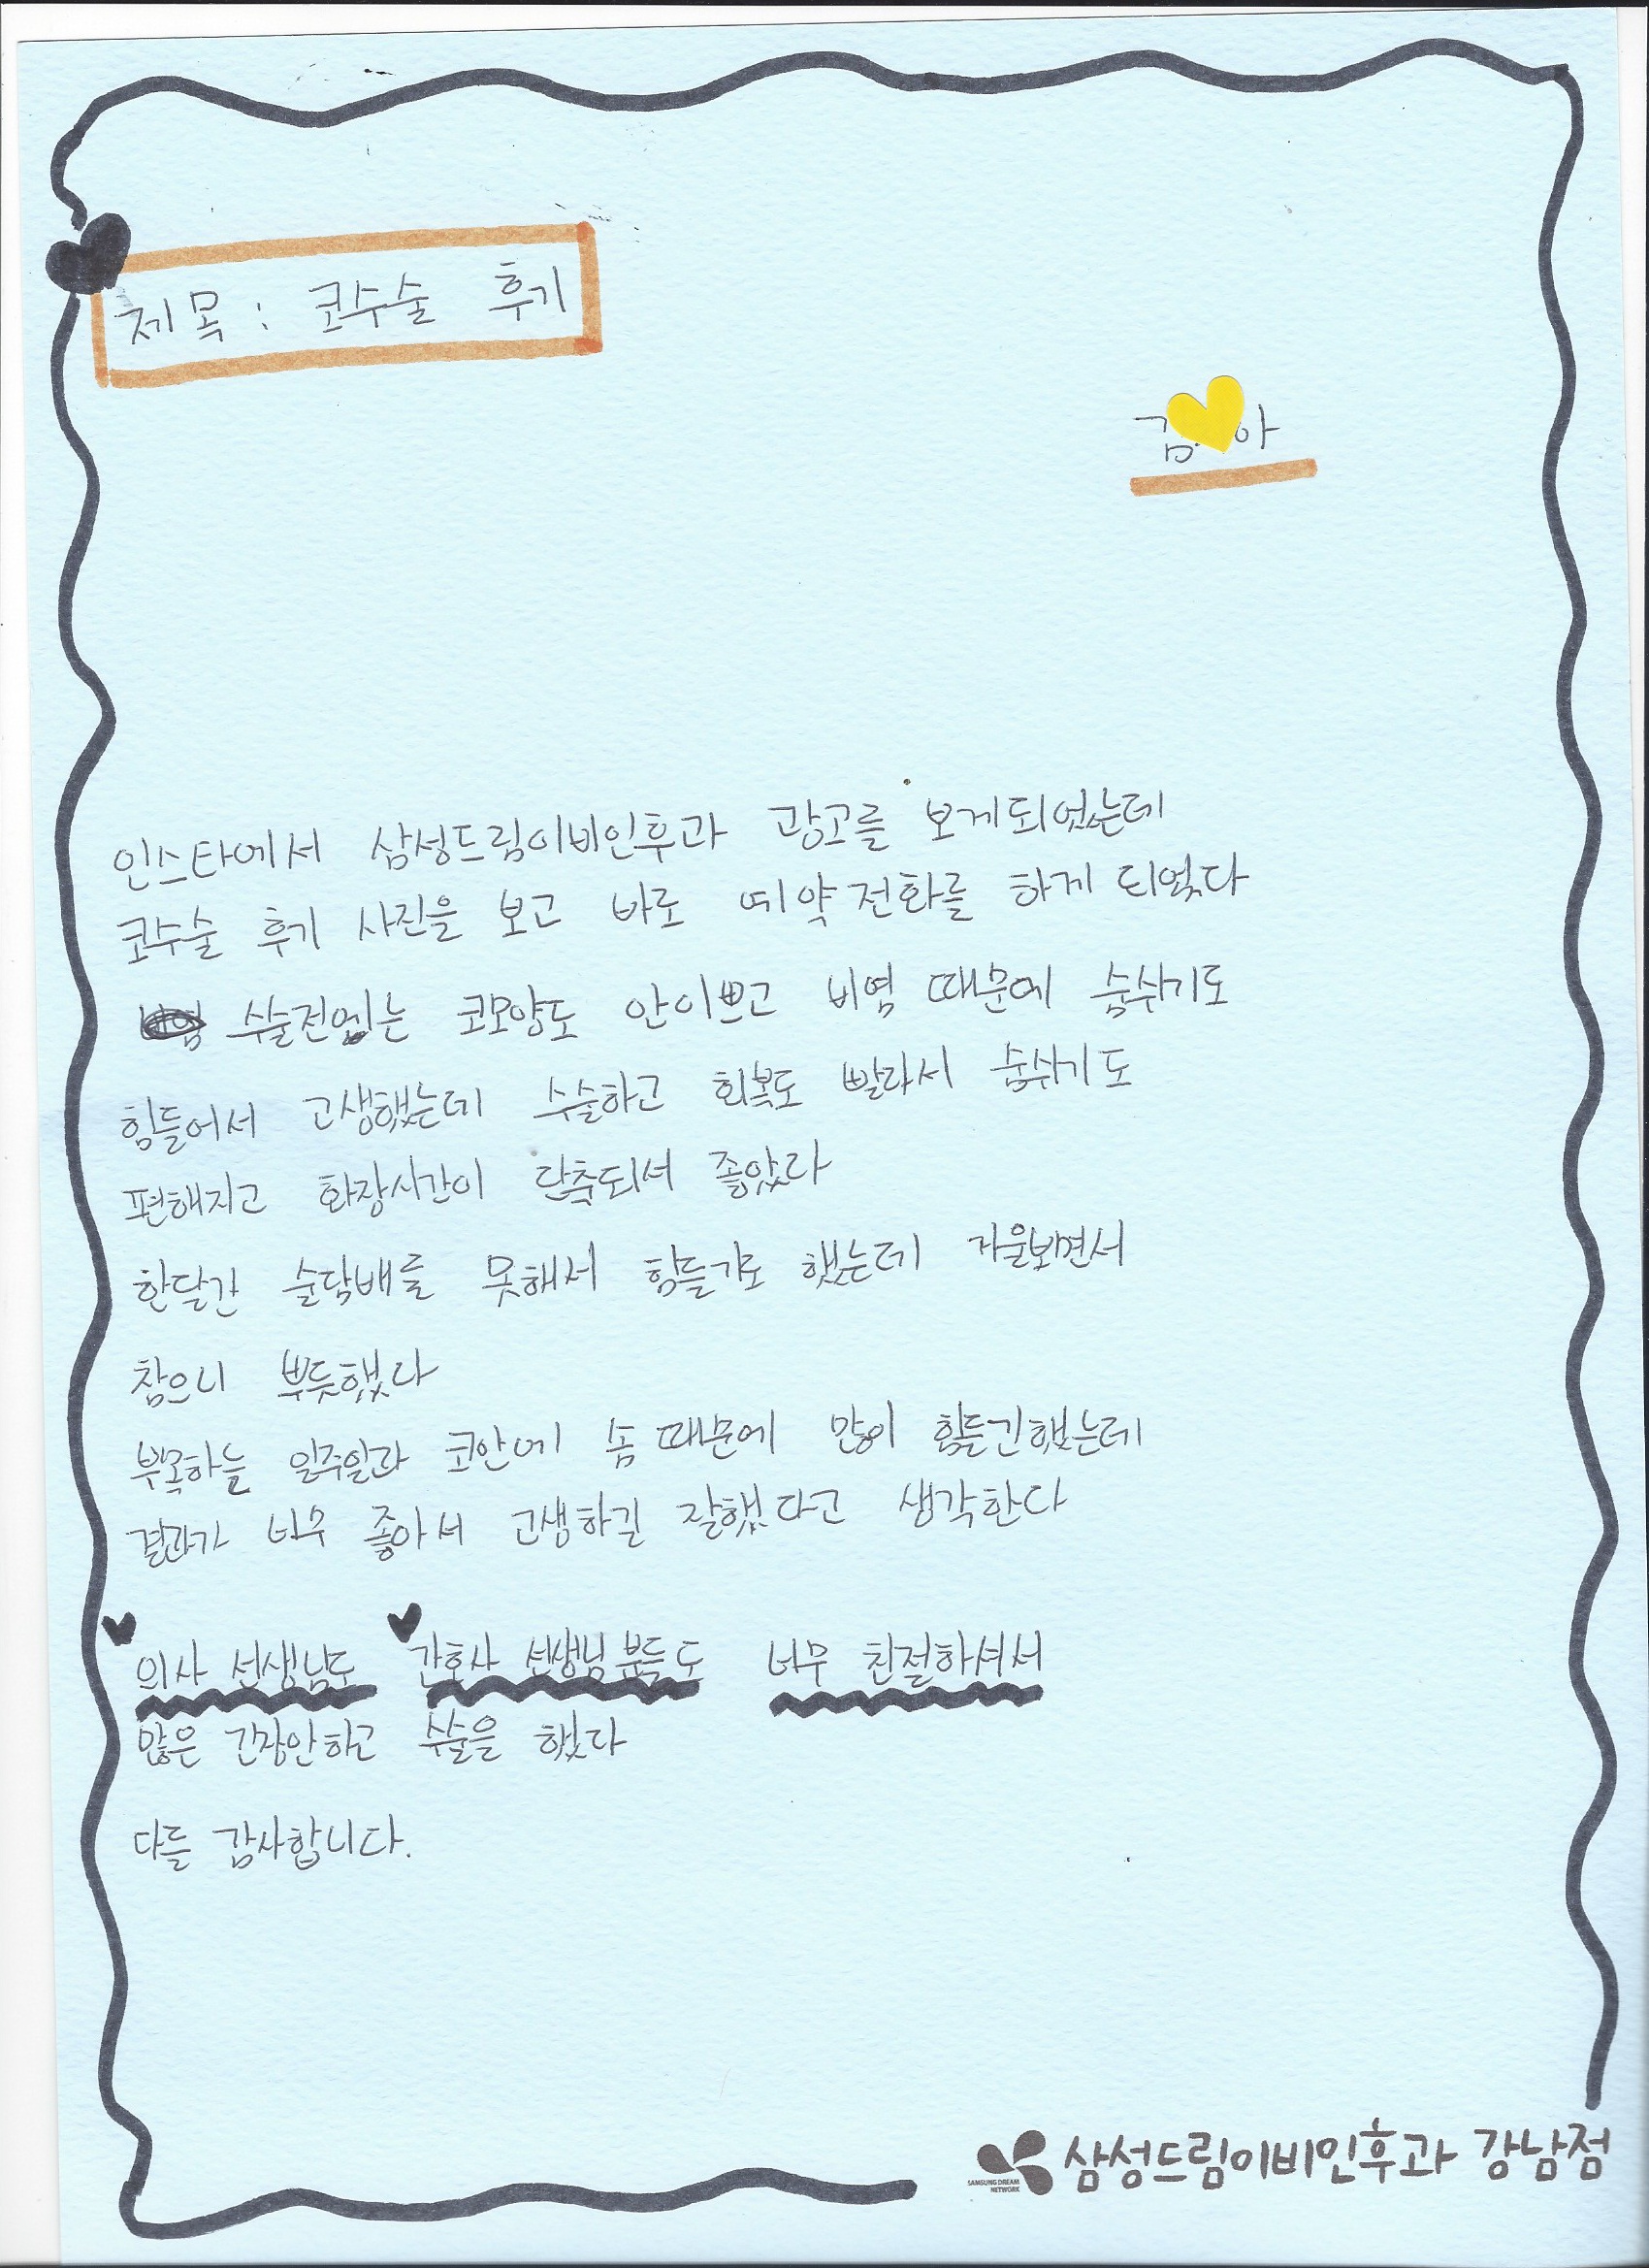 제목 : 코수술 후기
김 아
인스타에서 삼성드림이비인후과 광고를 보게되었는데
코수술 후기 사진을 보고 바로 예약전화를 하게 되었다
수술전에는 코모양도 안이쁘고 비염 때문에 숨쉬기도
힘들어서 고생했는데 수술하고 회복도 빨라서 숨쉬기도
편해지고 화장시간이 단축되서 좋았다
한달간 술담배를 못해서 힘들기도 했는데 거울보면서
참으니 뿌듯했다
부목하는 일주일과 코안에 솜 때문에 많이 힘들긴했는데
결과가 너무 좋아서 고생하길 잘했다고 생각한다
의사 선생님도 간호사 선생님 분들도 너무 친절하셔서
많은 긴장안하고 수술을 했다
다들 감사합니다.
삼성드림이비인후과 강남점
SAMSUNG DREAM
NETWORK